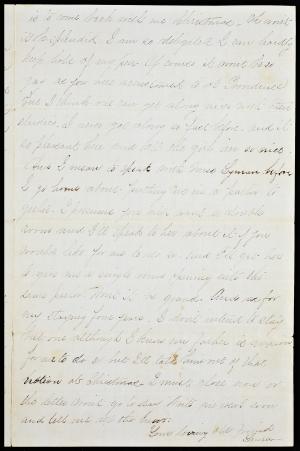 is to come back with me Christmas. Won't
it be splendid. I am so delighted I can hardly
keep hold of my pen. Of course it won't be so
gay as for one accustomed to at Providence
but I think one can get along nicer with their
studies. I never got along so fast before. And it
so pleasant here and all the girls are so nice.
I mean to speak with Miss Lyman before
I go home about
I presume you will want a double
room and I'll speak to her about it if you
would like for me to do so and I'll get her
to give me a single room opening with the
same parlor. Won't it be grand. And as for
my staying four years. I don't intend to stay
but one although I know my father is anxious
for me to do it but I'll talk him out of that
notion at Christmas. I must close now or
the letter won't go to day. Write me very soon
and tell me all the news.
Your loving old friend